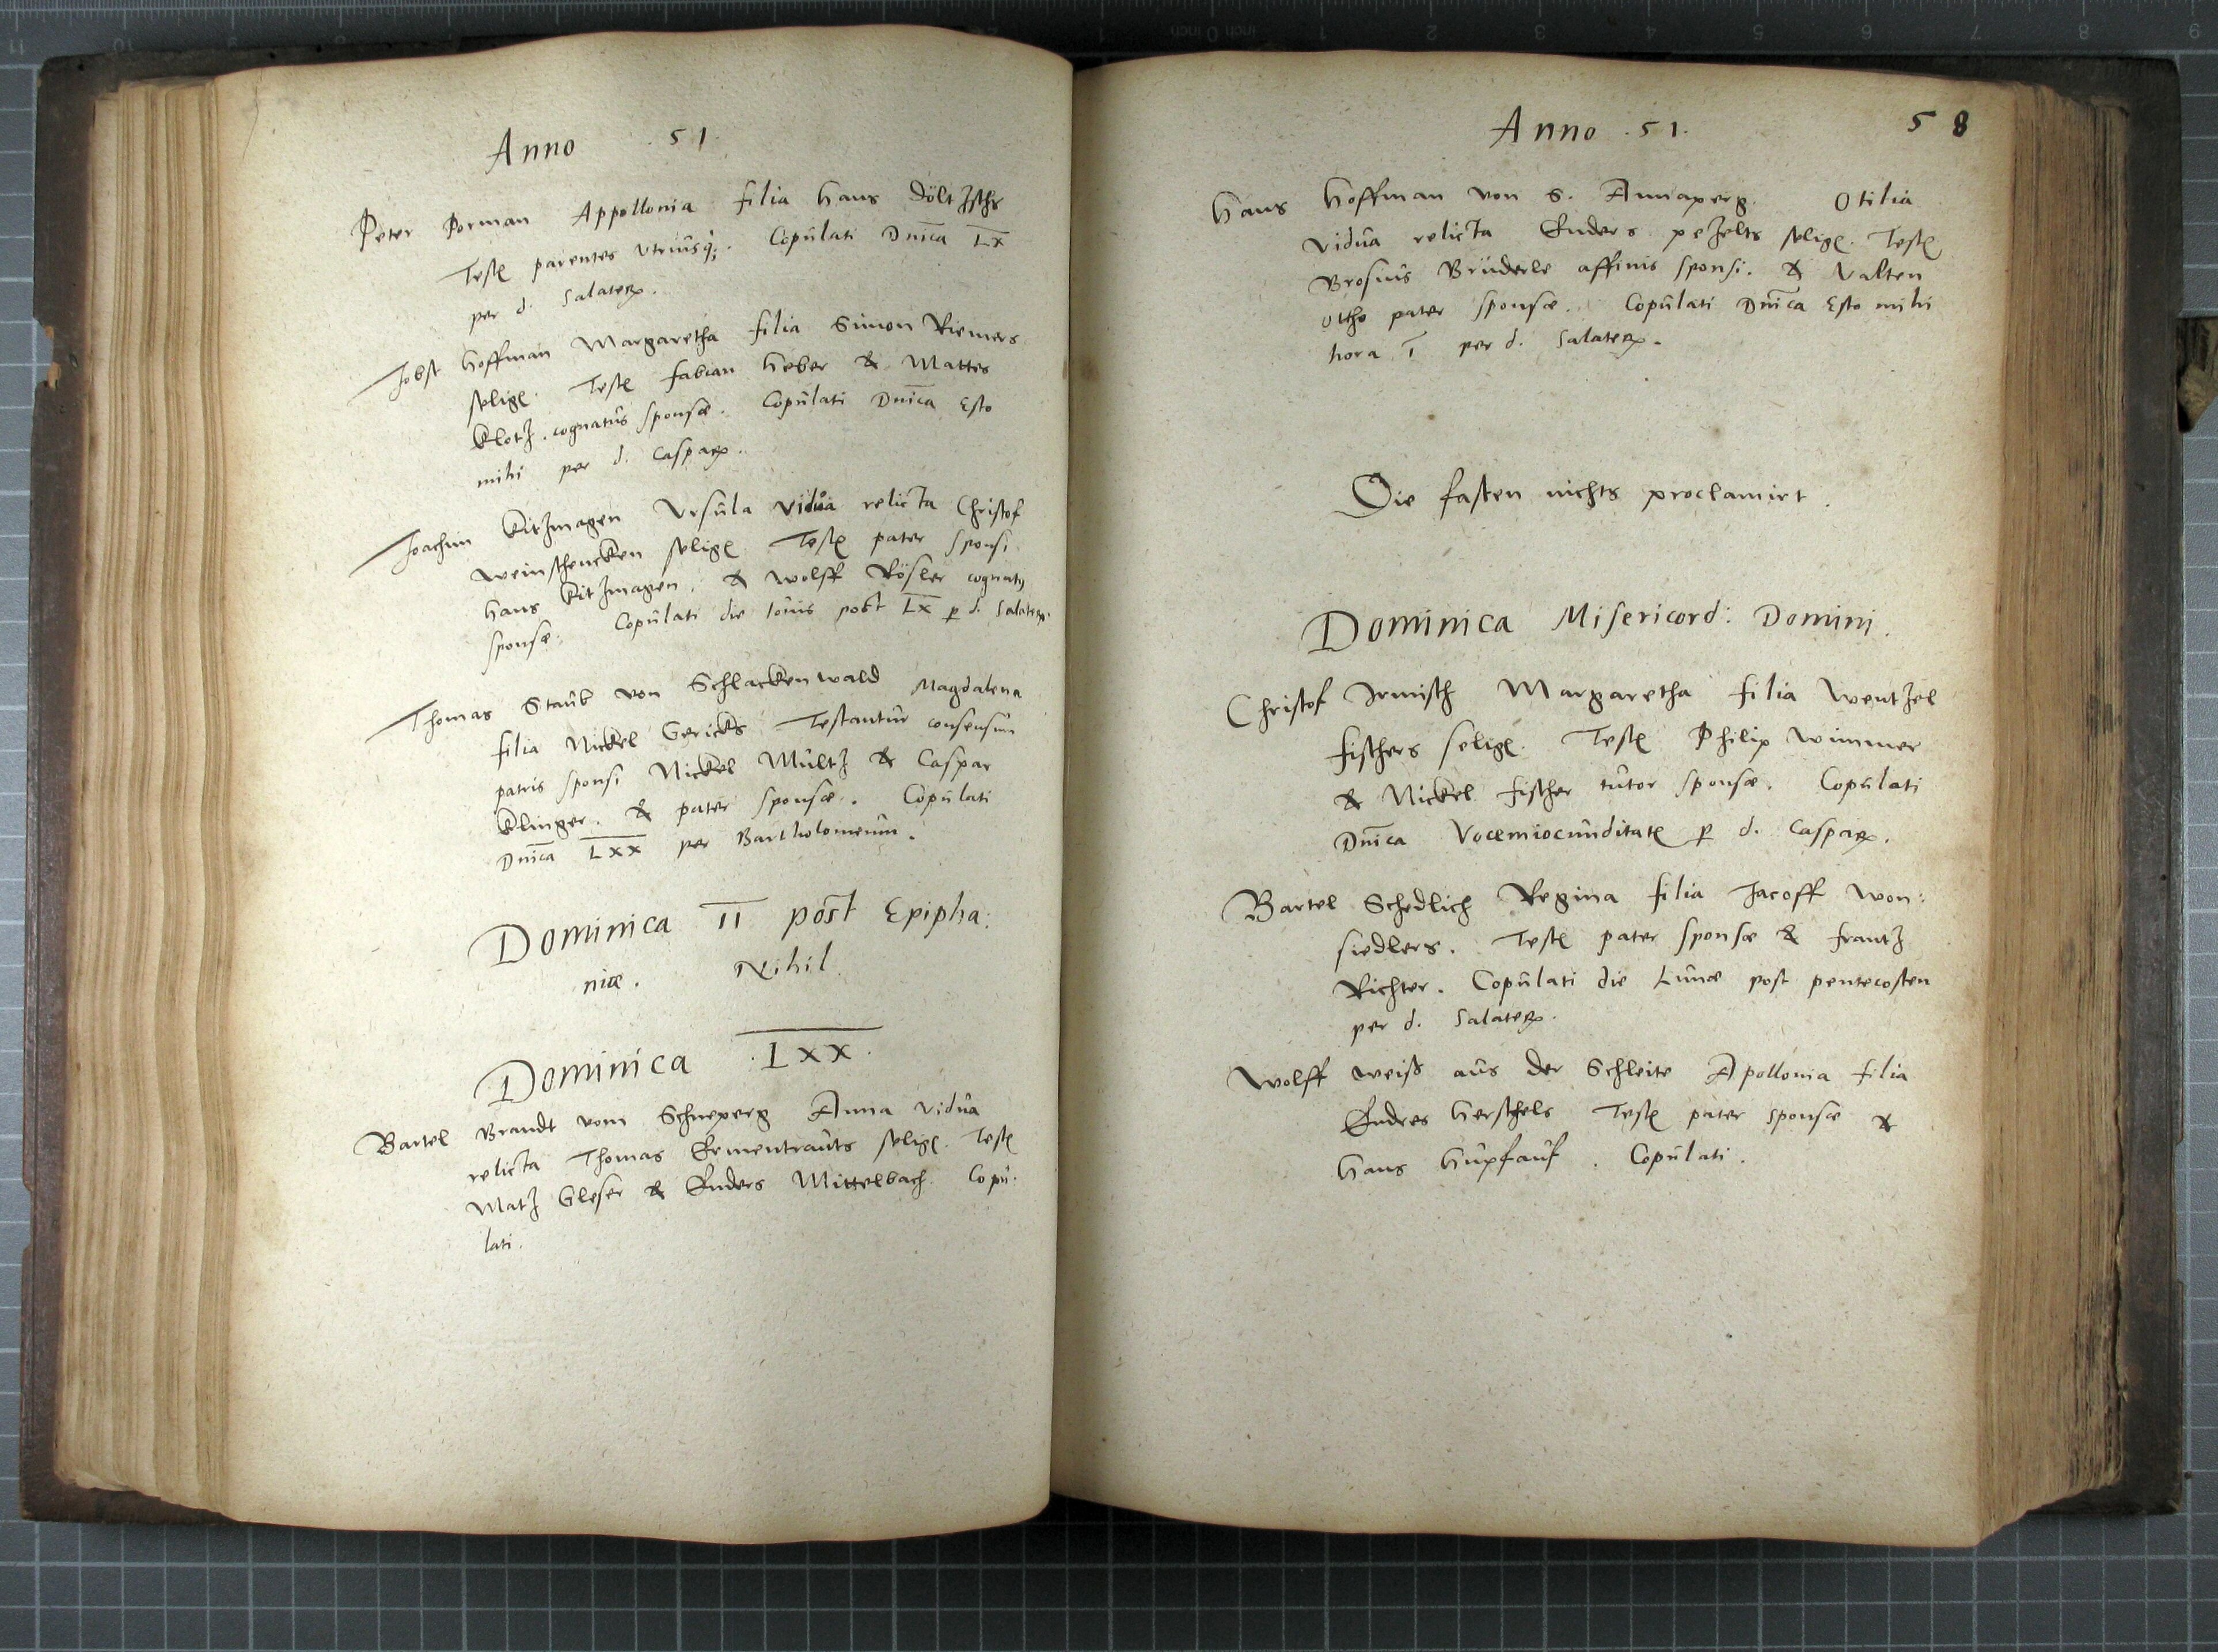 Anno .51.
Peter Dorman Appollonia filia Hans Döltzschs
Testes parentes utriusq; . Copulati Dnica LX
per d. Salaterum.
Jobst Hoffman Margaretha filia Simon Riemers
selige. Testes Fabian Heber & Mattes
Klotz. cognatus sponsæ. Copulati Dnica Esto
mihi per d. Casparum.
Joachim Kitzmagen Ursula vidua relicta Christof
Weinschencken selige Testes pater sponsi
Hans Kitzmagen, & Wolff Rösler cognatus
sponsæ. Copulati die Iovis post LX p d. Salaterum.
Thomas Staub von Schlackenwald Magdalena
filia Nickel Gericks Testantur consensum
patris sponsi Nickel Multz & Caspar
Klinger. & pater sponsæ. Copulati
Dnica LXX per Bartholomeum.
Dominica II post Epipha:
niæ. Nihil.
Dominica .LXX.
Bartel Brandt vom Schneperg Anna vidua
relicta Thomas Ermentrauts selige. Testes
Matz Gleser & Enders Mittelbach. Copu:
lati.
Anno .51. 58
Hans Hoffman von S. Annaperg. Otilia
vidua relicta Enders pezelts selige. Testes
Brosius Brüderle affinis sponsi. & Valten
Ottho pater sponsæ. Copulati Dnica Esto mihi
hora I per d. Salaterum.
Die fasten nichts proclamirt.
Dominica Misericord: Domini.
Christof Irmisch Margaretha filia Wentzel
fischers selige. Testes Philip Wimmer
& Nickel fischer tutor sponsæ. Copulati
Dnica Vocemiocunditatis p d. Casparum.
Bartel Schedlich Regina filia Jacoff Won:
siedlers. Testes pater sponsæ & frantz
Richter. Copulati die Lunæ post pentecosten
per d. Salaterum.
Wolff weiß aus der Schleite Apollonia filia
Endres Herschels Testes pater sponsæ &
Hans Hupfauf. Copulati.